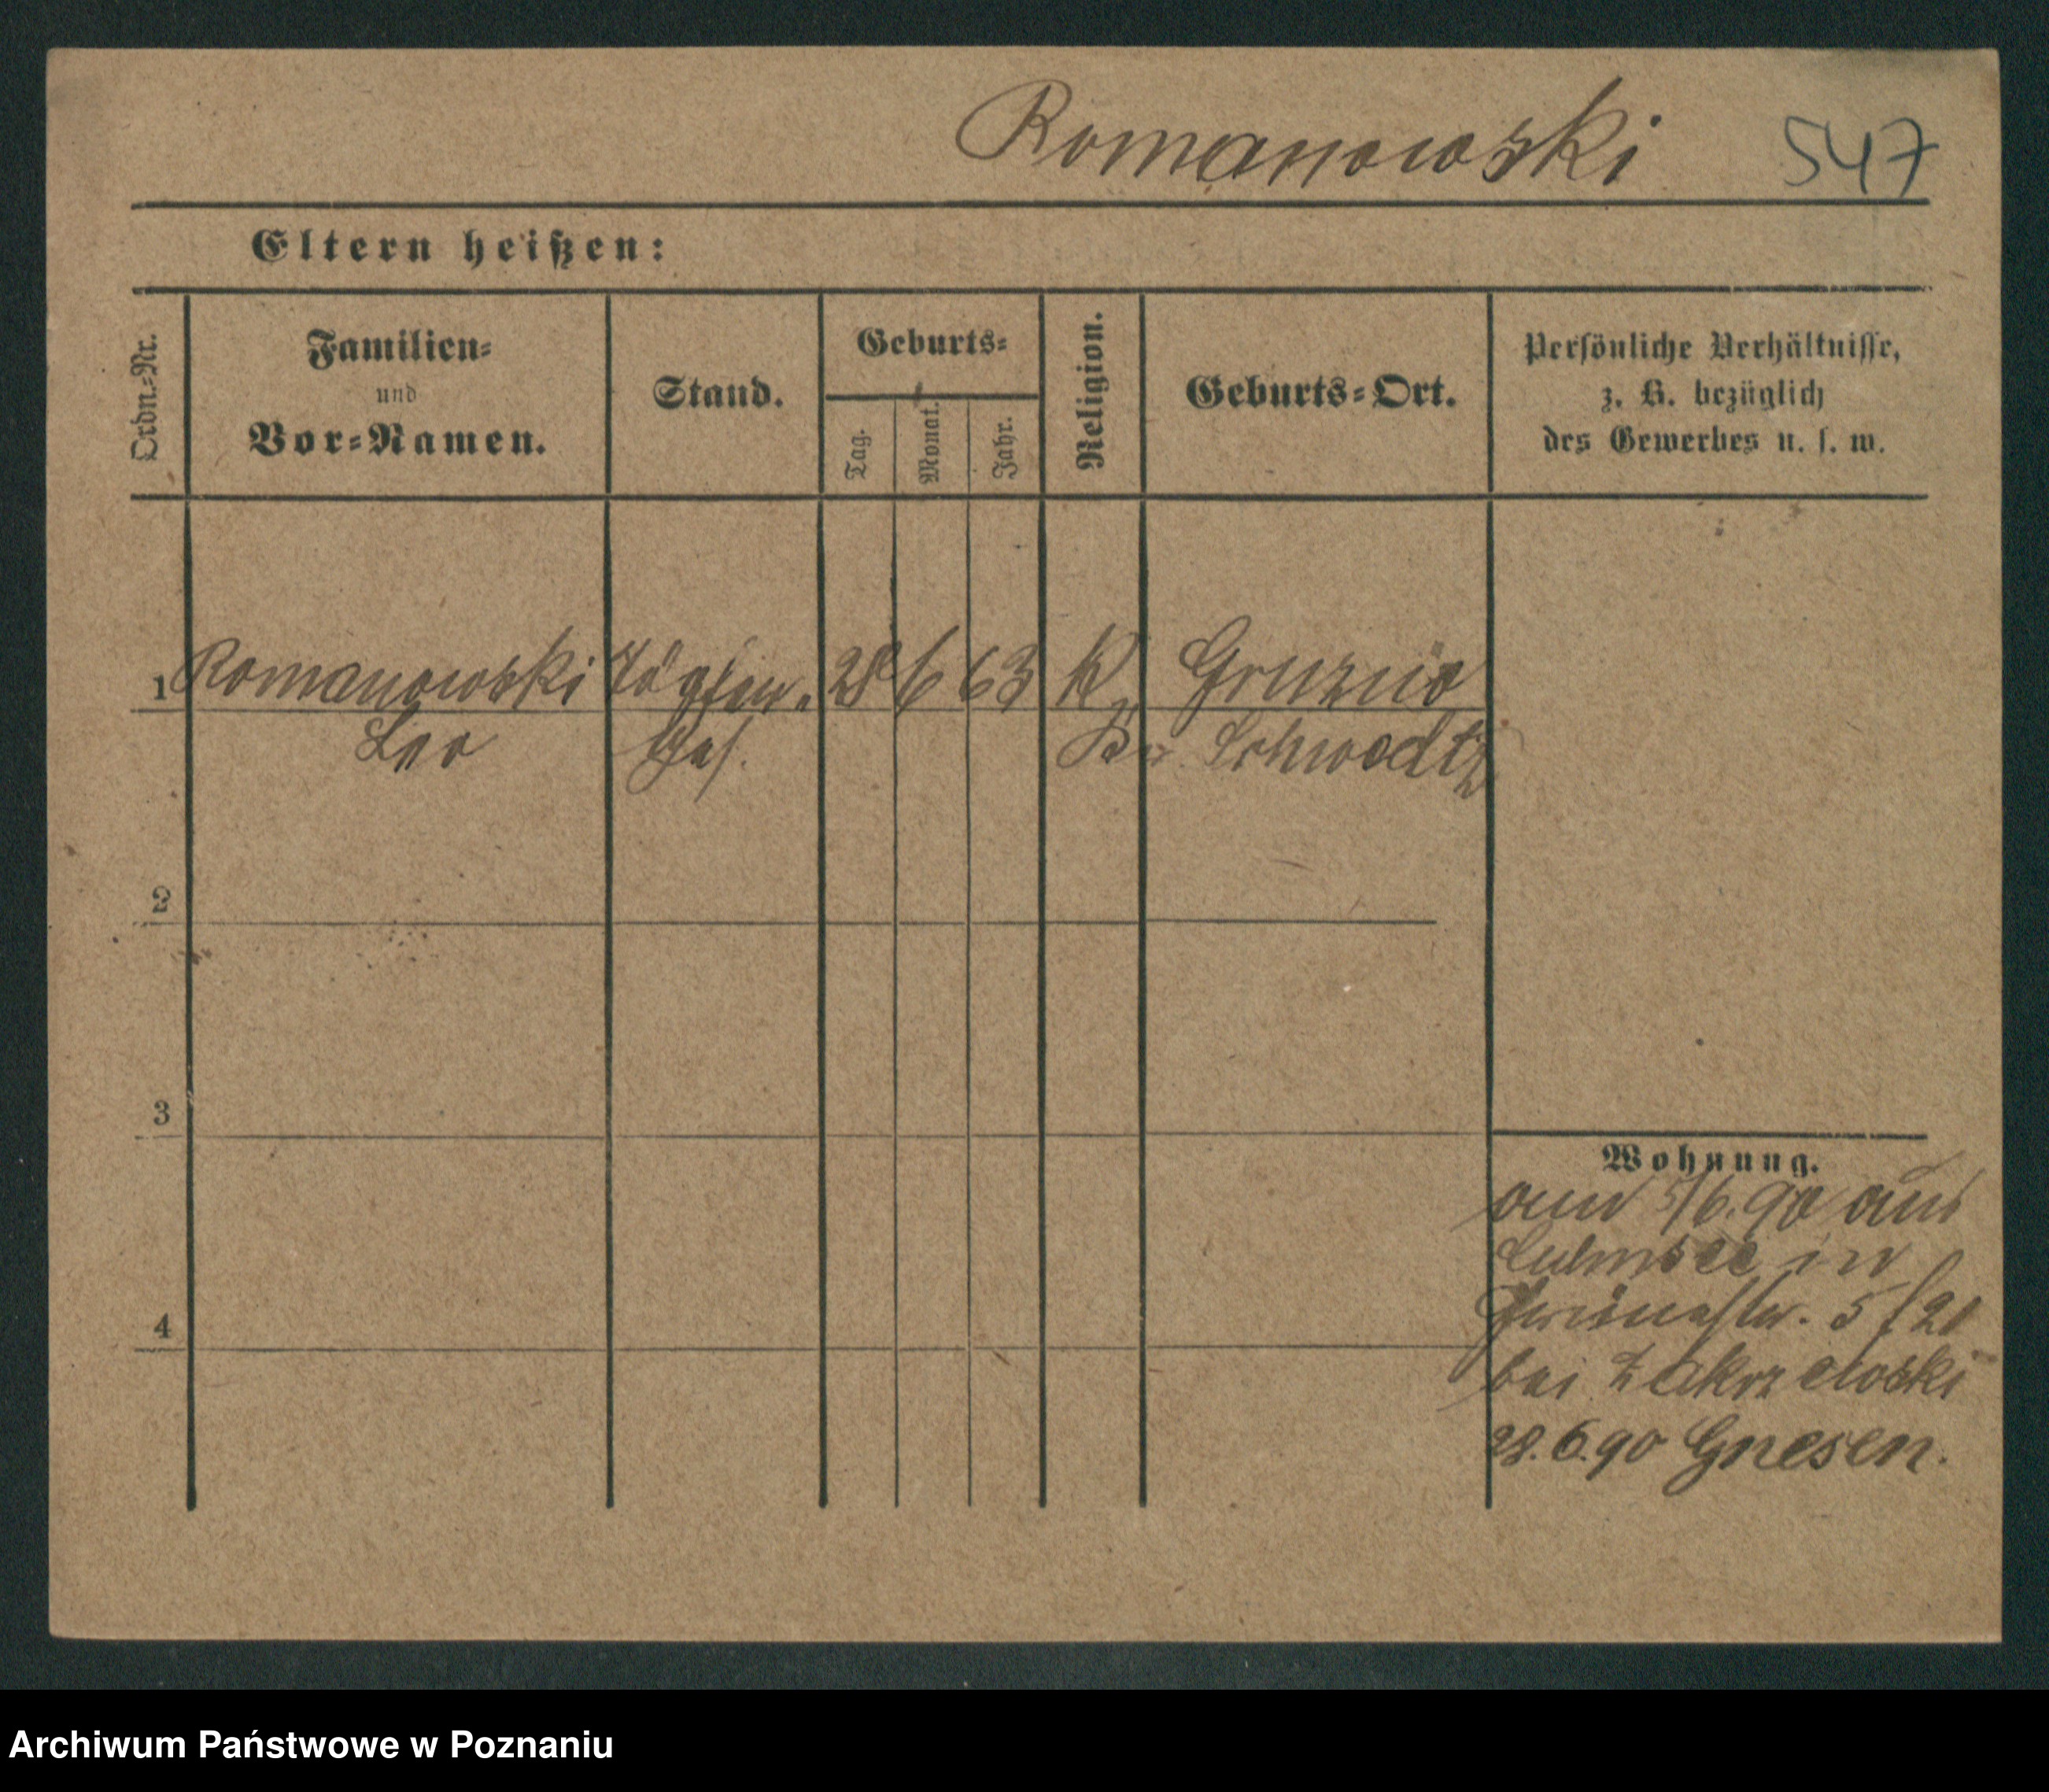 Romanowski 547
Eltern heißen:
Ordn.-Nr.
Familien-
und
Vor-Namen.
Stand.
Geburts-
Tag.
Monat.
Jahr.
Religion.
Geburts-Ort.
Persönliche Verhältnisse,
z. B. bezüglich
des Gewerbes u. s. w.
1 Romanowski 28 6 63 K
Leo Ges. Schwedtz
2
3
4
Wohnung.
5/6.90 aus
Culmsee in
5/21
bei Zakrzewski
28.6.90 Gnesen.
Archiwum Państwowe w Poznaniu